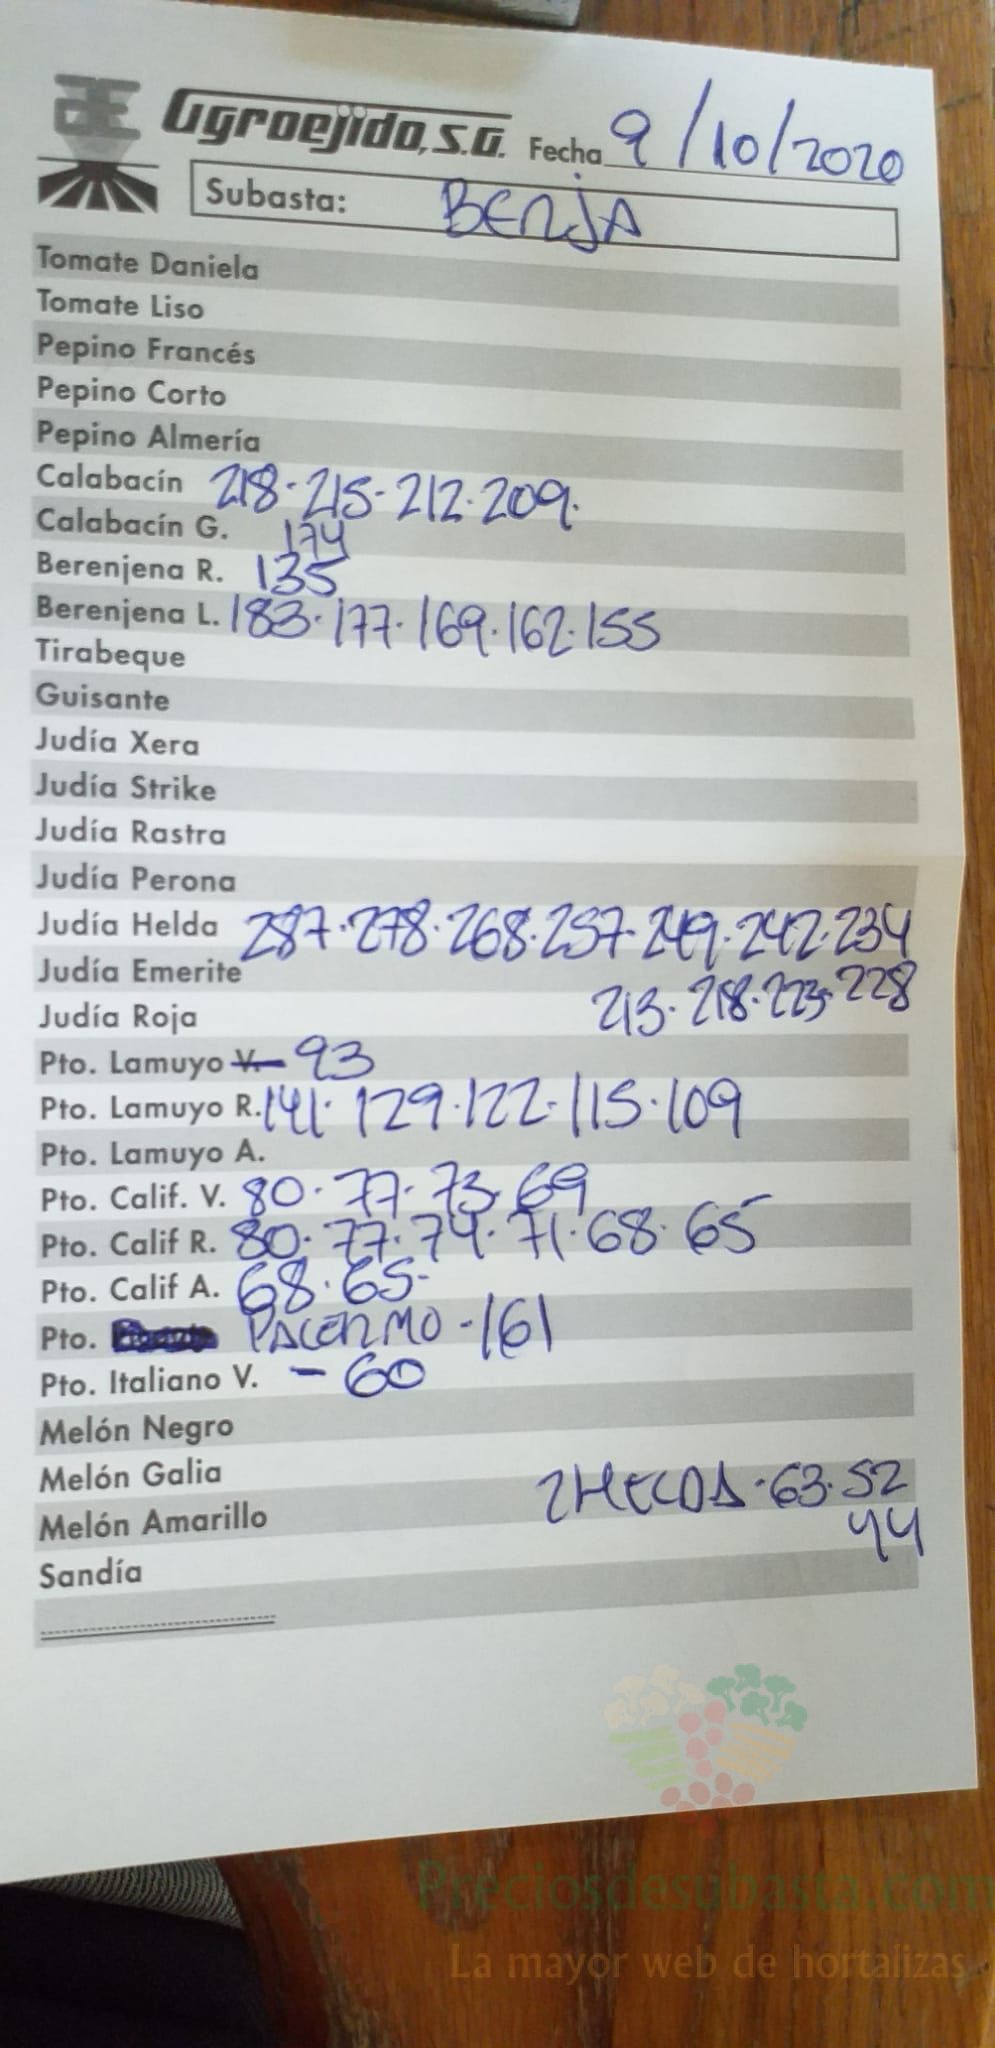 Agroejido, S.A. Fecha 9/10/2020
Subasta: BENJA
Tomate Daniela
Tomate Liso
Pepino Francés
Pepino Corto
Pepino Almería
Calabacín 218-215-212-209.
Calabacín G. 174
Berenjena R. 135
Berenjena L. 183-177-169-162-155
Tirabeque
Guisante
Judía Xera
Judía Strike
Judía Rastra
Judía Perona
Judía Helda 287-278-268-257-249-242-234
Judía Emerite 213-218-223-228
Judía Roja
Pto. Lamuyo V. 93
Pto. Lamuyo R. 141-129-122-115-109
Pto. Lamuyo A.
Pto. Calif. V. 80-77-73-69
Pto. Calif R. 80-77-74-71-68-65
Pto. Calif A. 68-65-
Pto. PALERMO-161
Pto. Italiano V. -60
Melón Negro
Melón Galia
63-52
Melón Amarillo 44
Sandía
Preciosdesubasta.com
La mayor web de hortalizas